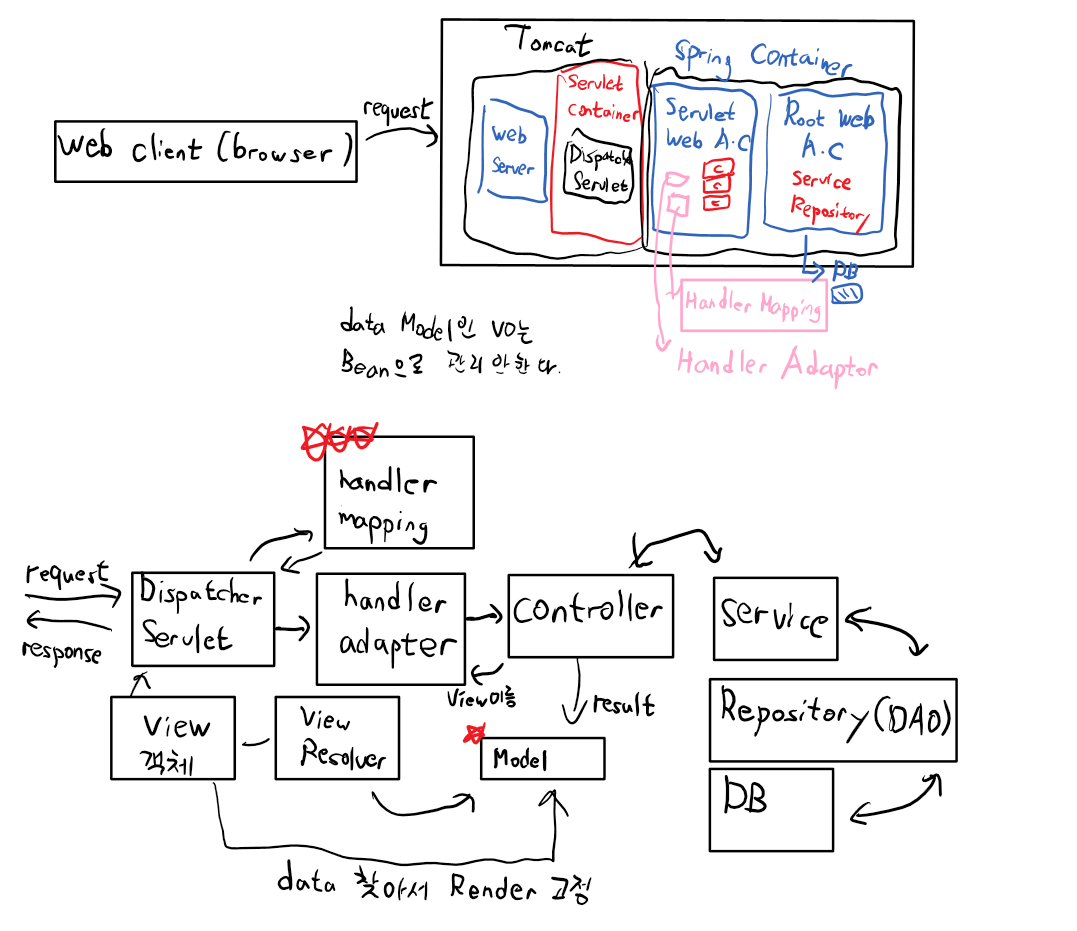 Tomcat
Spring Container
Web client (browser)
request
Web
Server
Servlet
Container
Dispatch
Servlet
Servlet
Web A.C
C
C
C
Root Web
A.C
Service
Repository
DB
Handler Mapping
Handler Adaptor
data Model인 VO는
Bean으로 관리 안한다.
handler
mapping
request
response
Dispatcher
Servlet
handler
adapter
controller
Service
View이름
result
Repository(DAO)
DB
View
객체
View
Resolver
Model
data 찾아서 Render 고정